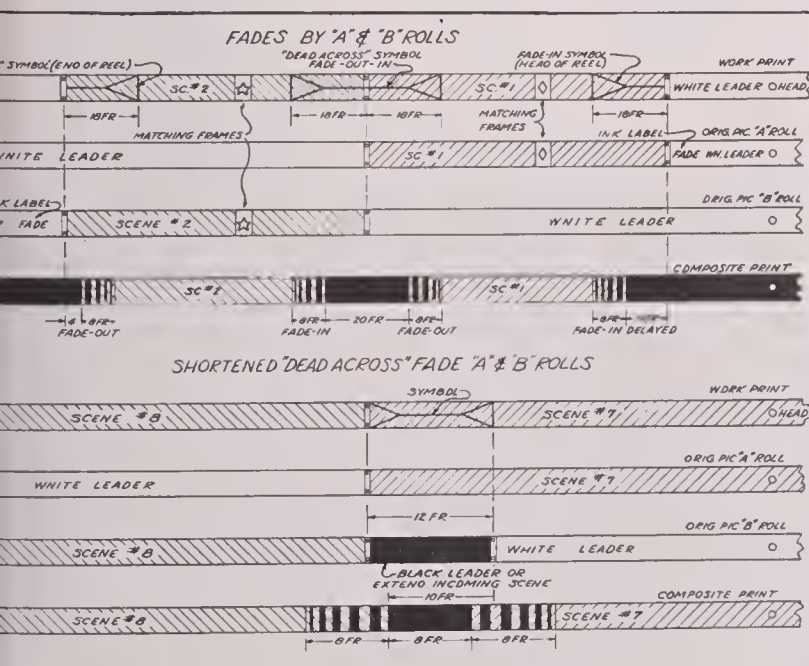 FADES BY "A" & "B" ROLLS
SYMBOL (END OF REEL)
"DEAD ACROSS" SYMBOL
FADE-OUT-IN
FADE-IN SYMBOL
(HEAD OF REEL)
WORK PRINT
SC#2
SC#1
WHITE LEADER
HEAD
18FR
18FR
18FR
18FR
MATCHING FRAMES
MATCHING
FRAMES
INK LABEL
ORIG. PIC. "A" ROLL
WHITE LEADER
SC#1
FADE WH. LEADER
LABEL
ORIG. PIC "B" ROLL
FADE
SCENE #2
WHITE LEADER
COMPOSITE PRINT
SC#2
SC#1
4
8FR
8FR
20FR
8FR
8FR
FADE-OUT
FADE-IN
FADE-OUT
FADE-IN DELAYED
SHORTENED "DEAD ACROSS" FADE "A" & "B" ROLLS
SYMBOL
WORK PRINT
SCENE #8
SCENE #7
HEAD
ORIG. PIC "A" ROLL
WHITE LEADER
SCENE #7
12 FR
ORIG. PIC "B" ROLL
SCENE #8
WHITE LEADER
BLACK LEADER OR
EXTEND INCOMING SCENE
10FR
COMPOSITE PRINT
SCENE #8
SCENE #7
8FR
8FR
8FR